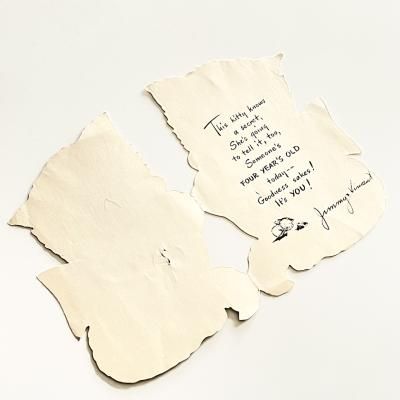 This kitty knows
a secret,
She's going
to tell it, too,
Someone's
FOUR YEAR'S OLD
today--
Goodness sakes!
It's YOU!
Jimmy & Vincent